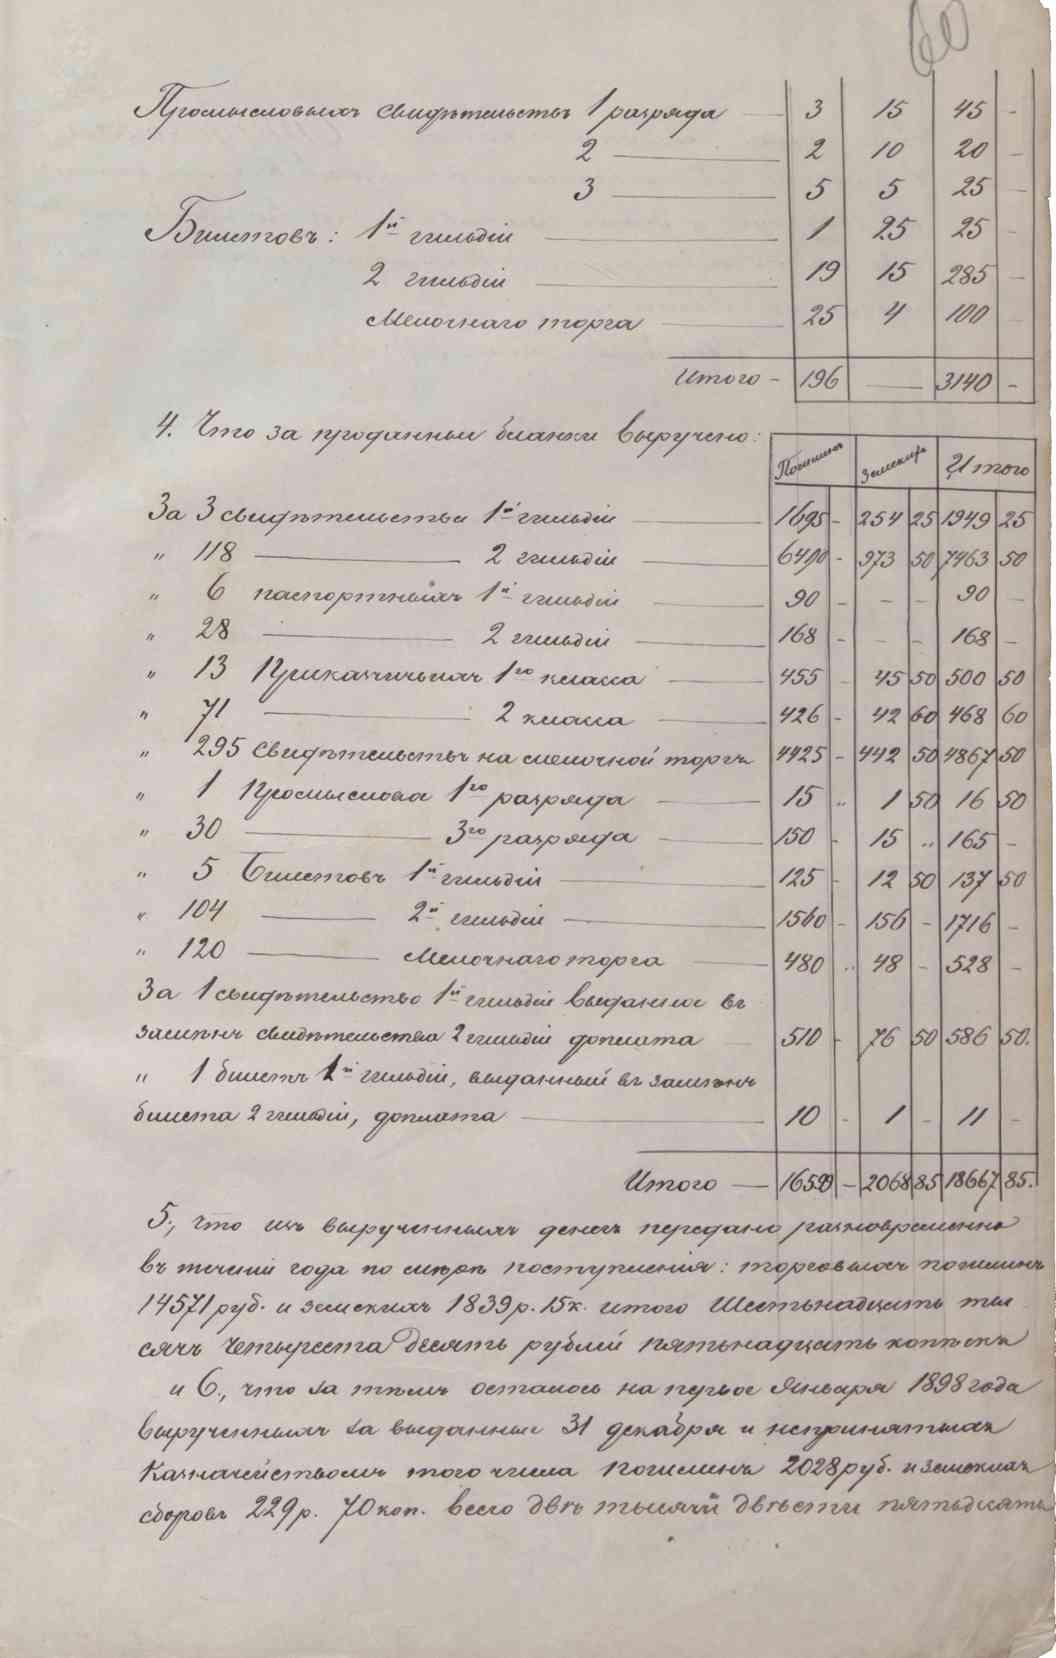 60
Промысловыхъ свидѣтельствъ 1 разряда 3 15 45 -
2 — 2 10 20 -
3 — 5 5 25 -
Билетовъ: 1й гильдіи — 1 25 25 -
2 гильдіи — 19 15 285 -
Мелочнаго торга — 25 4 100
Итого - 196 — 3140 -
4. Что за проданныя бланки выручено:
Пошлинъ Земскихъ Итого
За 3 свидѣтельства 1й гильдіи — 1695 - 254 25 1949 25
" 118 — 2 гильдіи — 6490 - 973 50 7463 50
" 6 паспортныхъ 1й гильдіи — 90 - - - 90 -
" 28 — 2 гильдіи — 168 - - - 168 -
" 13 Приказчичьихъ 1го класса — 455 - 45 50 500 50
" 71 — 2 класса — 426 - 42 60 468 60
" 295 свидѣтельствъ на мелочной торгъ 4425 - 442 50 4867 50
" 1 Промысловаго 1го разряда — 15 .. 1 50 16 50
" 30 — 3го разряда — 150 - 15 .. 165 -
" 5 Билетовъ 1й гильдіи — 125 - 12 50 137 50
" 104 — 2й гильдіи — 1560 - 156 - 1716 -
" 120 — Мелочнаго торга — 480 .. 48 - 528 -
За 1 свидѣтельство 1й гильдіи выданное въ
замѣнъ свидѣтельства 2 гильдіи доплата — 510 - 76 50 586 50.
" 1 билетъ 1й гильдіи, выданный въ замѣнъ
билета 2 гильдіи, доплата — 10 - 1 - 11 -
Итого — 16599 - 2068 85 18667 85.
5., что изъ вырученныхъ денегъ передано разновременно
въ теченіи года по мѣрѣ поступленія: торговыхъ пошлинъ
14571 руб. и земскихъ 1839 р. 15 к. итого Шестьнадцать ты
сячъ четыреста десять рублей пятьнадцать копѣекъ
и 6., что за тѣмъ осталось на первое Января 1898 года
вырученныхъ за выданныя 31 декабря и непринятыхъ
Казначействомъ того числа пошлинъ 2028 руб. и земскихъ
сборовъ 229 р. 70 коп. всего двѣ тысячи двѣсти пятьдесятъ